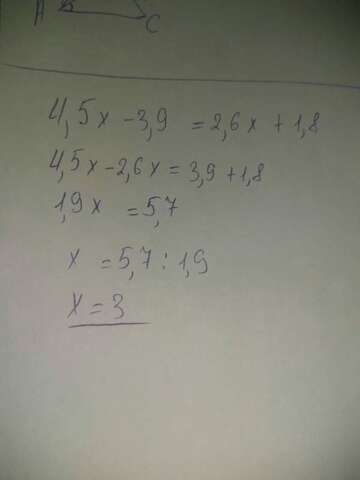 A
C
4,5x - 3,9 = 2,6x + 1,8
4,5x - 2,6x = 3,9 + 1,8
1,9x = 5,7
x = 5,7 : 1,9
x = 3